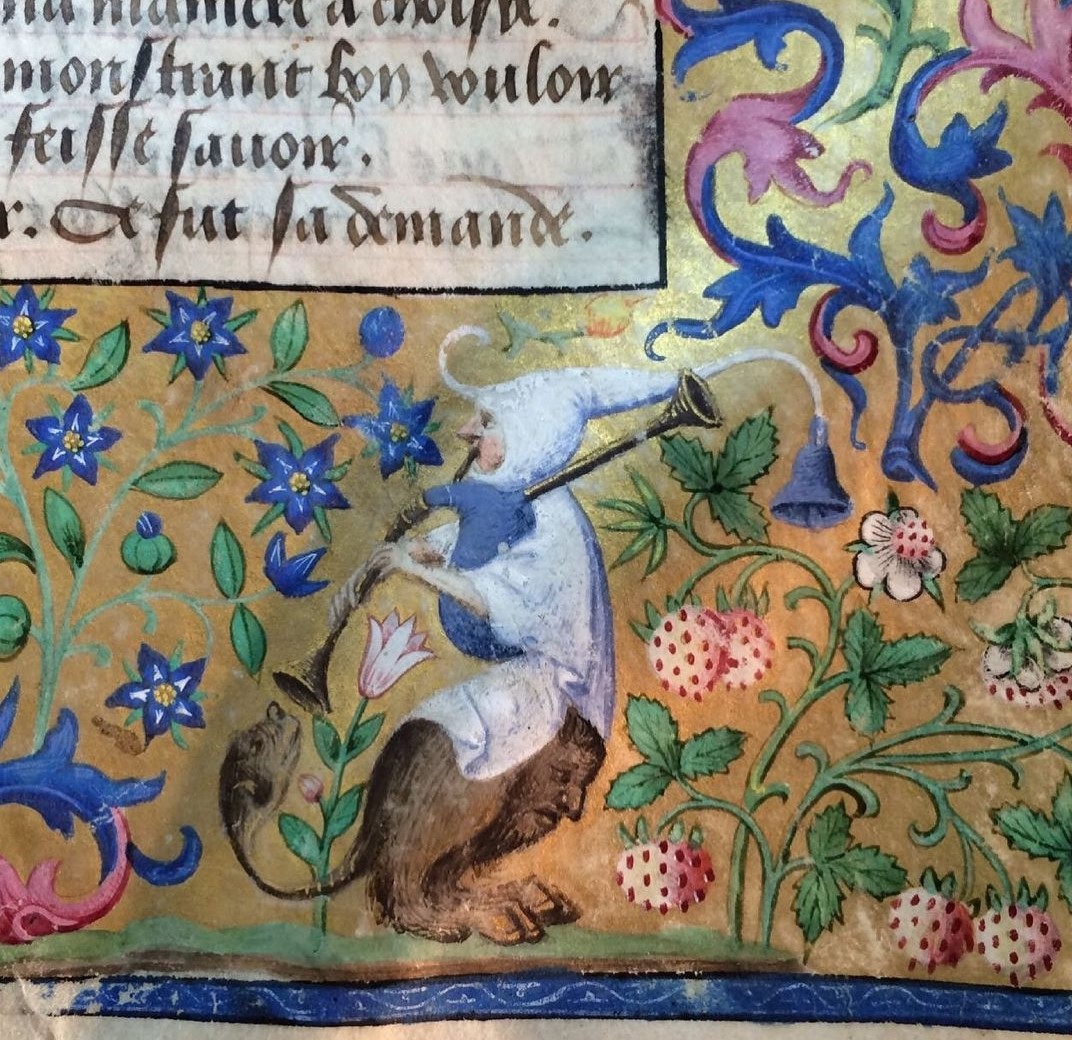 ma maniere a choisir.
monstrant son vouloir
feisse sauoir.
r. Et fut sa demande.